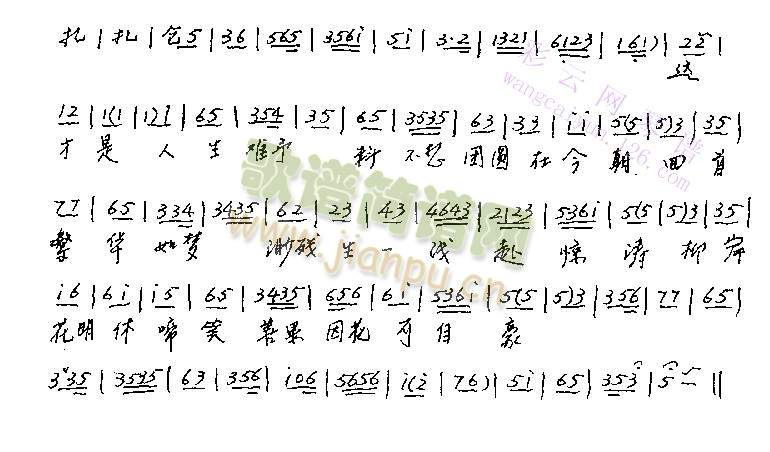 扎 | 扎 | 仓 5 | 3 6 | 5 6 5 | 3 5 6 i | 5 i | 3·2 | 1 3 2 1 | 6 1 2 3 | 1 6 1) | 2 2 |
这
1 2 | 1(1 | 1) 1 | 6 5 | 3 5 4 | 3 5 | 6 5 | 3 5 3 5 | 6 3 | 3 3 | i i | 5(5 | 5) 3 | 3 5 |
才 是 人 生 难予 料 不想 团圆 在 今 朝 回 首
7 7 | 6 5 | 3 3 4 | 3 4 3 5 | 6 2 | 2 3 | 4 3 | 4 6 4 3 | 2 1 2 3 | 5 3 6 i | 5(5 | 5) 3 | 3 5 |
繁 华 如梦 渺 残 生 一 浅 赴 惊 涛 柳 岸
i 6 | 6 i | i 5 | 6 5 | 3 4 3 5 | 6 5 6 | 6 i | 5 3 6 i | 5(5 | 5) 3 | 3 5 6 | 7 7 | 6 5 |
花明 休 啼 笑 善果 因花 可 自 豪
3 3 5 | 3 5 3 5 | 6 3 | 3 5 6 | i 0 6 | 5 6 5 6 | i(i | 7 6) | 5 i | 6 5 | 3 5 3 | 5 - ||
歌谱简谱网
www.jianpu.cn
彩云网